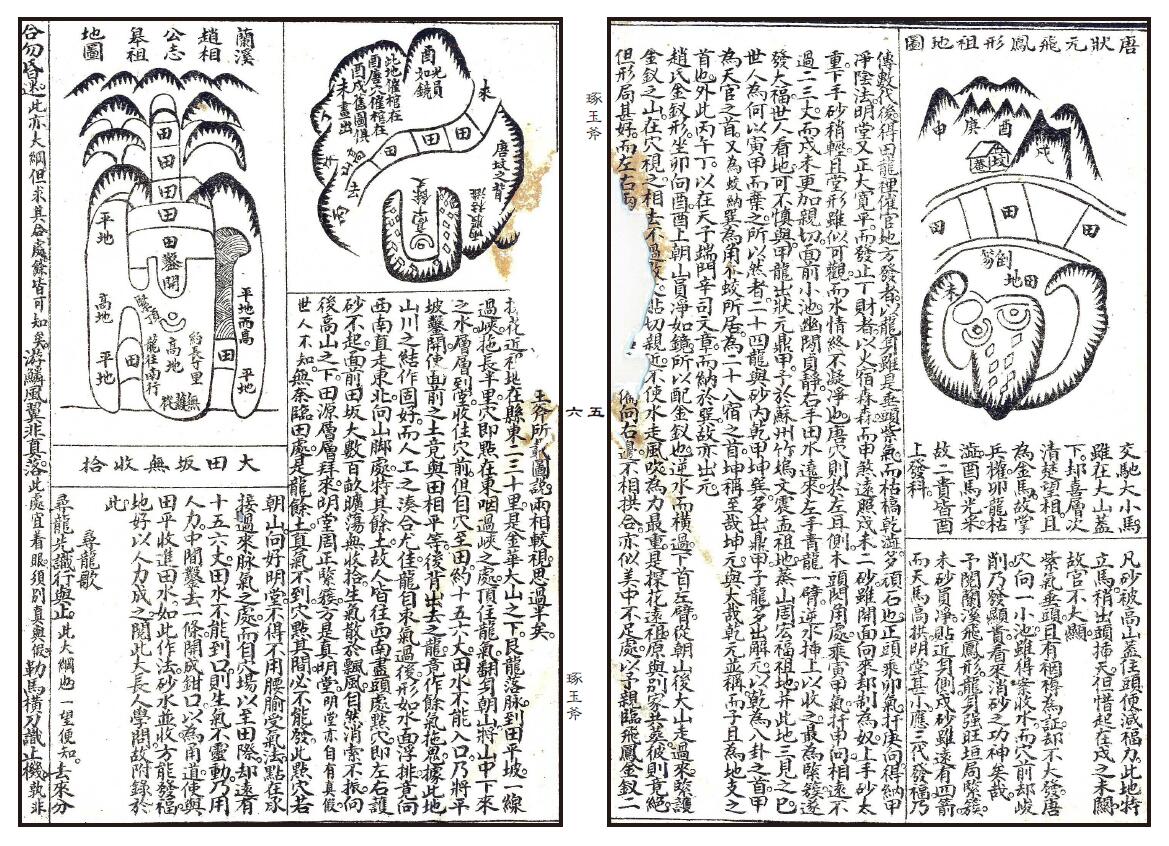 唐狀元飛鳳形祖地圖
酉
庚
申
戌
田
田
田
倒笏
田地
未
交馳大小馬
雖在大山蓋
下却喜層次
清楚望相且
為金馬故掌
兵權卯龍枯
澁酉馬光采
故二貴皆酉
上發科
凡砂被高山蓋住頭便減福力此地特
立馬稍出頭揷天但惜起在戌之未闢
故官不大顯
紫氣垂頭且有裀褥為証却不大發唐
穴向一小池雖得緊收水而穴前却峻
削乃發顯貴看來消砂之功神矣哉
予閱蘭溪飛鳳形龍到強旺垣局緊簇
未砂員淨貼近到側戌砂雖遠有四箭
而天馬高拱明堂其小應三代發福乃
傳數代後得田龍裡催官地方發者以龍到雖是垂頭紫氣而枯槁乾澁多頑石也正頭乘卯氣扦庚向得納甲
淨陰法明堂又正大寬平而發止丁財者以火宿森森而甲煞遠照戌未一砂雖開面向來却刮為奴上手砂太
重下手砂稍輕且堂形雖似可觀而水情終不凝淨也唐穴則扒左耳側木頭閗用處乘寅甲氣扦申向相連不
過二三丈而戌未更加親切面前小池幽閒員靜右手田水遠來左手青龍一臂逆水揷上以收之最為緊簇遂
發大福世人看地可不慎與甲龍出狀元鼎甲予於蘇州竹塢文震孟祖地蒸山周宏福祖地并此地三見之已
世人為何以寅甲而棄之所以然者二十四龍與砂內乾甲坤巽多出鼎甲子龍多出解元以乾為八卦之首甲
為天官之首又為蛟納巽為角木蛟所居為二十八宿之首坤稱至哉坤元與大哉乾元並稱而子且為地支之
首也外此丙午丁以在天千端門辛司文章而納於巽故亦出元
趙氏金釵形坐卯向酉酉上朝山員淨如鏡所以配金釵也逆水而橫過下首左臂從朝山後大山走過來緊護
金釵之山在穴視之相去不過
貼切親近不使水走風吹為力最重是探花遠祖原與別家共葬彼則竟絕
但形局甚好而左右兩
向右邊不相拱合亦似美中不足處以予親臨飛鳳金釵二
琢玉斧
五六
琢玉斧
酉
光員
如鏡
來
此地催棺在
酉唐穴催棺在
酉戌舊圖俱
未畫出
唐墳之背
田
田
田
去
探花近祖地在縣東二三十里是金華大山之下艮龍落脉到田平坡一線
過峽拖長半里穴即點在東咽過峽之處頂住龍氣翻身朝山將山中下來
之水層層到堂收住穴前但自穴至田約十五六丈田水不能入口乃將平
坡鑿開使面前之土竟與田相平等後背出去之龍竟作餘氣拖曳據此地
山川之結作固好而人工之湊合尤佳龍自來氣過後形如水面浮排竟向
西南直走東北向山脚處特其餘土故人皆往西南盡頭處點穴即左右護
砂不起面前田坂大數百畝曠蕩無收拾生氣散於飄風自然消索不振向
後高山之下田源層層拜來明堂周正緊簇方是真明堂明堂亦自有真假
世人不知無奈臨田處是龍餘土真氣不到穴點其間必不能發此點穴若
玉斧所載圖說兩相較視思過半矣
蘭溪
趙相
公志
皋祖
地圖
田
田
田
田
田
鑿開
平地
高地
平地
田
緊頂
龍往南行
高地
約長半里
無護從
平地而高
田
平地
大田坂無收拾
朝山向好明堂不得不用腰腧受氣法點在承
接過來脉氣之處而自穴場以至田際却遠有
十五六丈田水不能到口則生氣不靈動乃用
人力中間鑿去一條開成鉗口以為甬道使與
田平收進田水如此作法砂水並收方能發福
地好以人力成之閱此大長人學問故附錄於
此
尋龍歌
尋龍先識行與止此大綱也一望便知去來分
合勿昏迷此亦大綱但求其合處餘皆可知矣游鱗風翼非真落此處宜着眼須別真與假勒馬橫刀識止機孰非